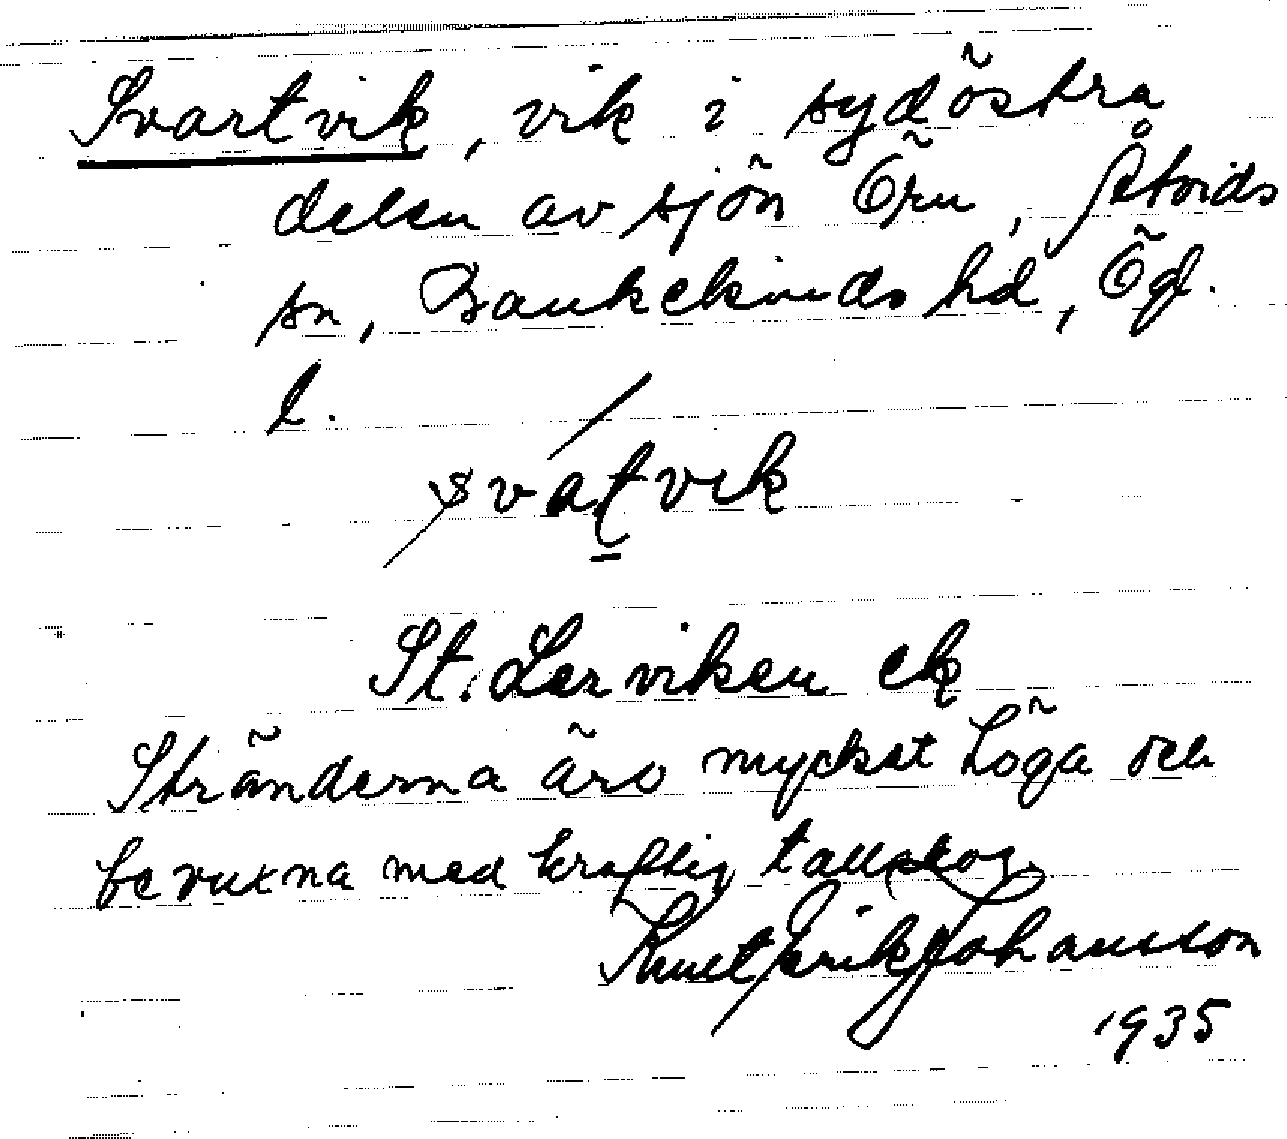 Svartvik, vik i sydöstra
delen av sjön Ören, Åtvids
sn, Bankekinds hd, Ögl.
l.
svatvik
St. Lerviken ek
Stränderna äro mycket höga och
bevuxna med kraftig tallskog.
Knut Erik Johansson
1935